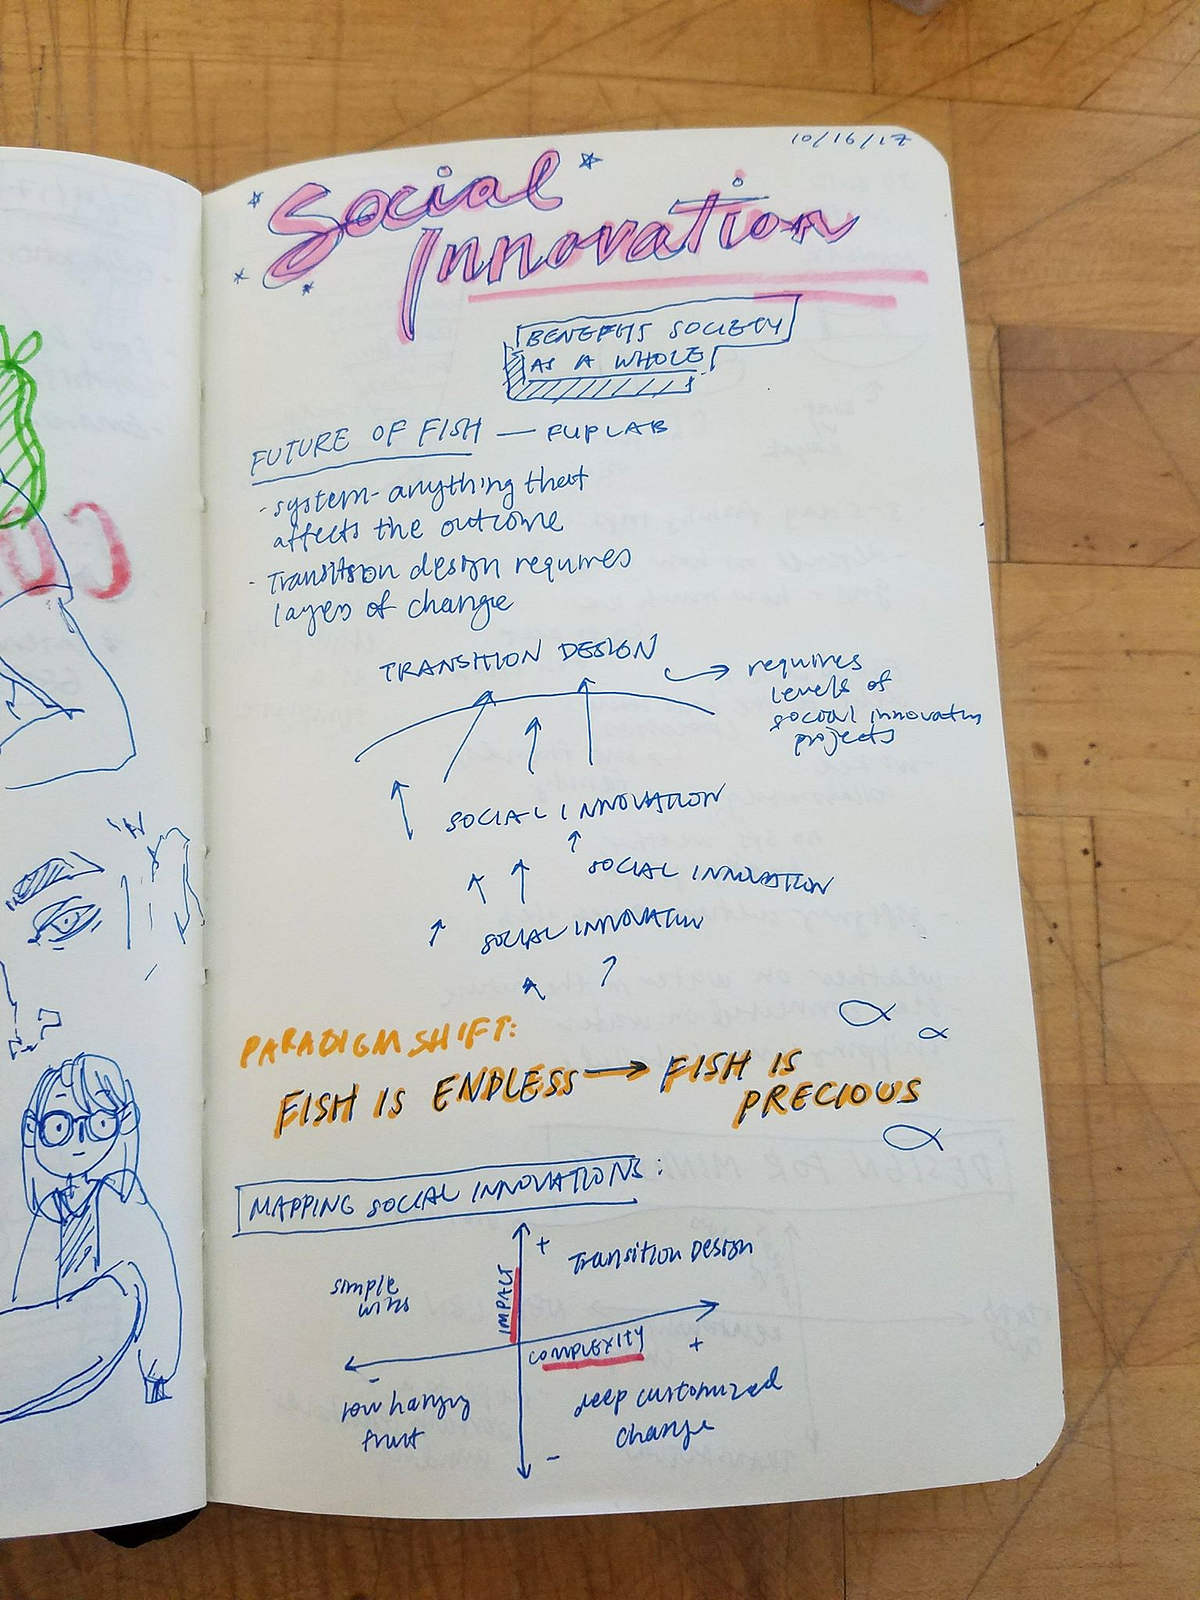 10/16/17
Social
Innovation
BENEFITS SOCIETY
AS A WHOLE
FUTURE OF FISH — FLIPLAB
- system - anything that
affects the outcome
- Transition design requires
layers of change
TRANSITION DESIGN
requires
levels of
social innovation
projects
SOCIAL INNOVATION
SOCIAL INNOVATION
SOCIAL INNOVATION
PARADIGM SHIFT:
FISH IS ENDLESS → FISH IS
PRECIOUS
MAPPING SOCIAL INNOVATIONS:
+
Transition Design
simple
wins
IMPACT
COMPLEXITY
+
-
low hanging
fruit
deep customized
change
-